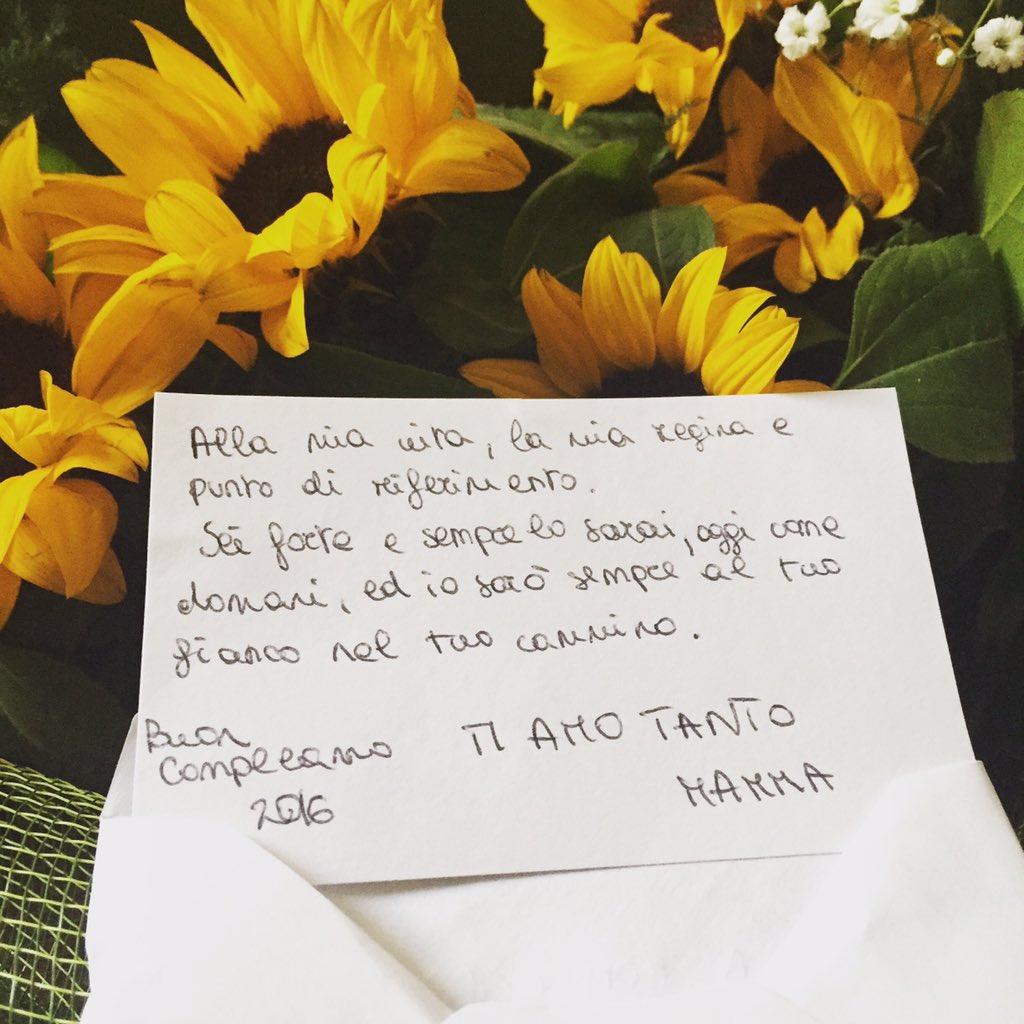 Alla mia vita, la mia regina e
punto di riferimento.
Sei forte e sempre lo sarai, oggi come
domani, ed io sarò sempre al tuo
fianco nel tuo cammino.
Buon
Compleanno
2016
TI AMO TANTO
MAMMA